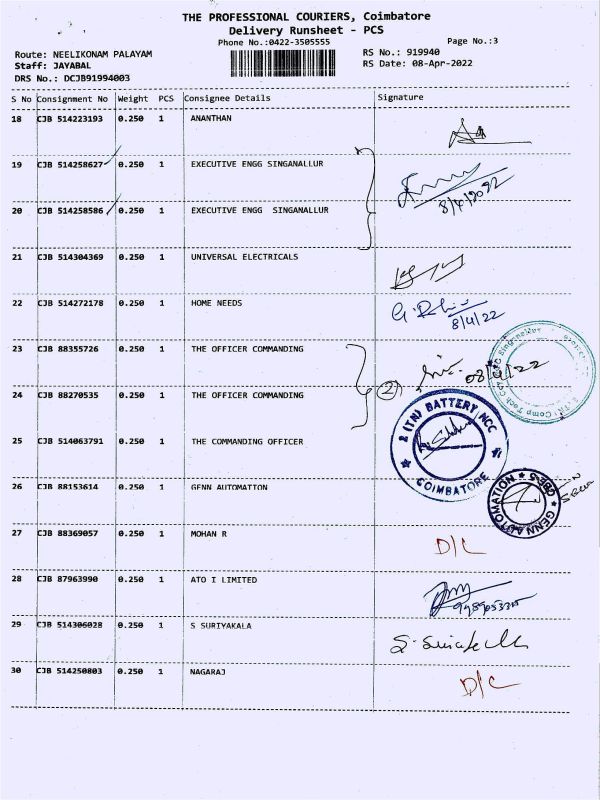 THE PROFESSIONAL COURIERS, Coimbatore
Delivery Runsheet - PCS
Phone No.:0422-3505555 Page No.:3
Route: NEELIKONAM PALAYAM RS No.: 919940
Staff: JAYABAL RS Date: 08-Apr-2022
DRS No.: DCJB91994003
S No Consignment No Weight PCS Consignee Details Signature
18 CJB 514223193 0.250 1 ANANTHAN
19 CJB 514258627 0.250 1 EXECUTIVE ENGG SINGANALLUR
8/4/2022
20 CJB 514258586 0.250 1 EXECUTIVE ENGG SINGANALLUR
21 CJB 514304369 0.250 1 UNIVERSAL ELECTRICALS
22 CJB 514272178 0.250 1 HOME NEEDS
8/4/22
23 CJB 88355726 0.250 1 THE OFFICER COMMANDING
08/4/22
24 CJB 88270535 0.250 1 THE OFFICER COMMANDING
2
2 (TN) BATTERY NCC
COIMBATORE
25 CJB 514063791 0.250 1 THE COMMANDING OFFICER
26 CJB 88153614 0.250 1 GENN AUTOMATION
GENN AUTOMATION
27 CJB 88369057 0.250 1 MOHAN R D/C
28 CJB 87963990 0.250 1 ATO I LIMITED
29 CJB 514306028 0.250 1 S SURIYAKALA
30 CJB 514250803 0.250 1 NAGARAJ D/C